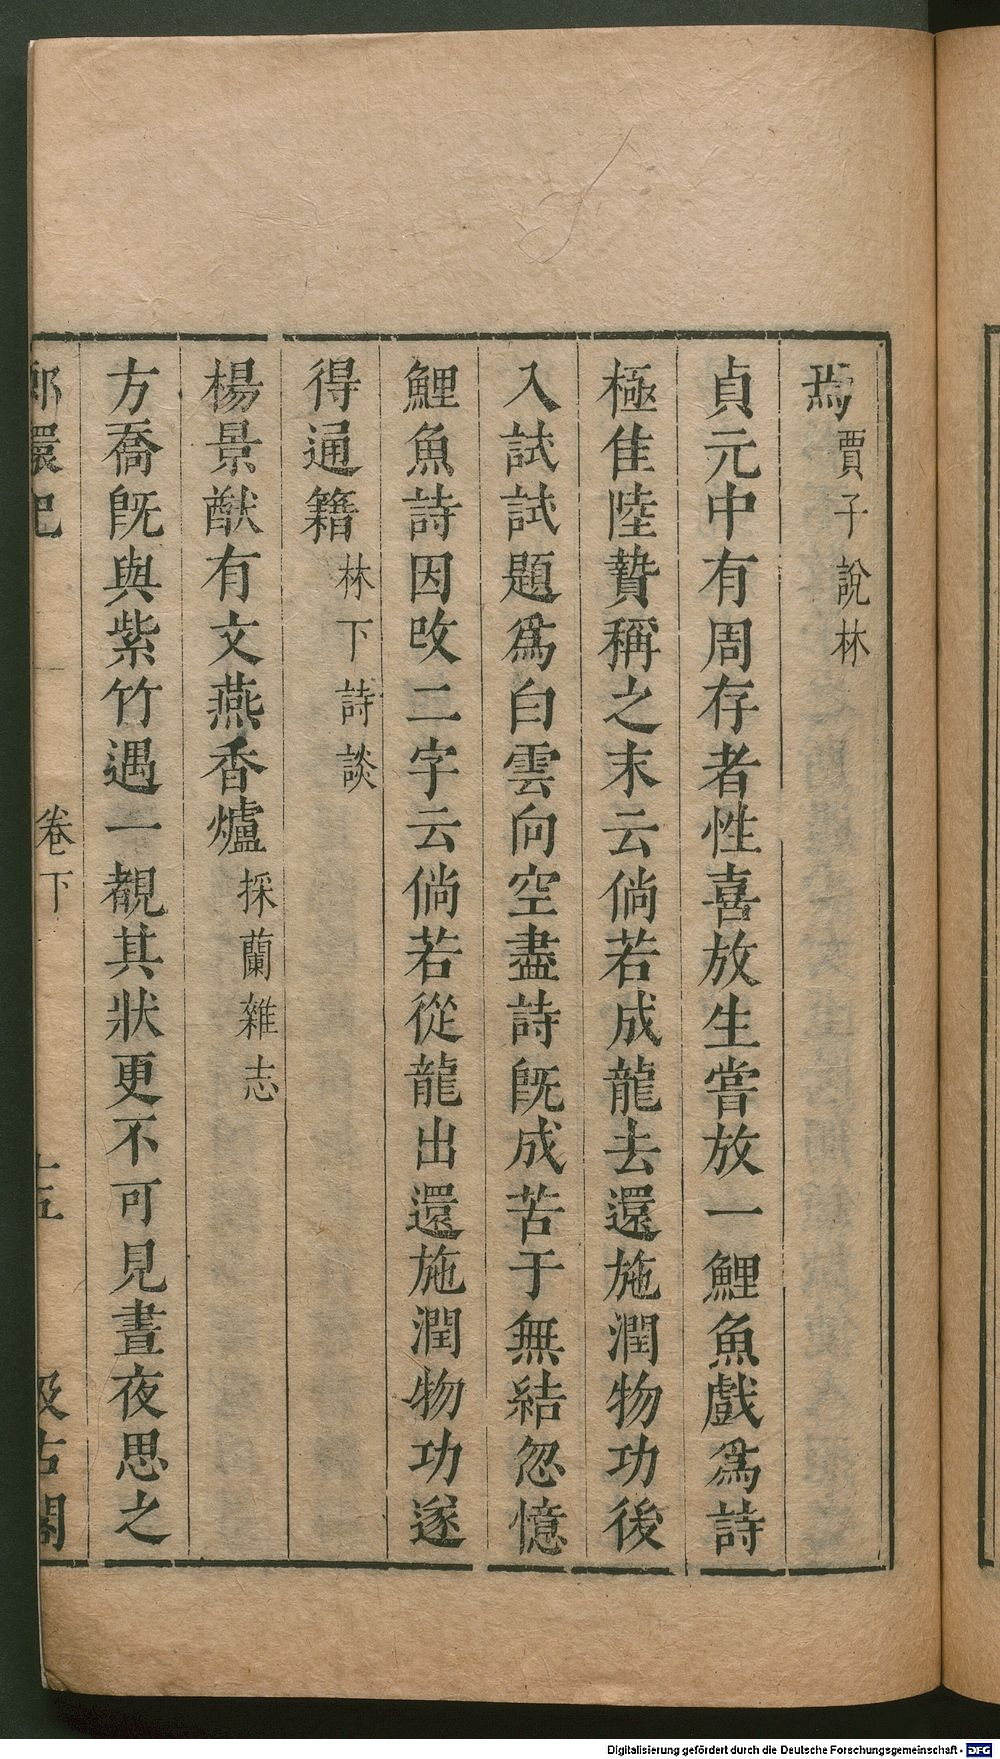 焉賈子說林
貞元中有周存者性喜放生嘗放一鯉魚戲爲詩
極佳陸贄稱之末云倘若成龍去還施潤物功後
入試試題爲白雲向空盡詩既成苦于無結忽憶
鯉魚詩因改二字云倘若從龍出還施潤物功遂
得通籍林下詩談
楊景猷有文燕香爐採蘭雜志
方喬既與紫竹遇一覩其狀更不可見晝夜思之
郎環記 卷下 十五 汲古閣
Digitalisierung gefördert durch die Deutsche Forschungsgemeinschaft - DFG